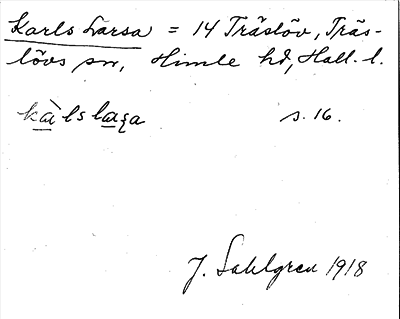 Karls Larsa = 14 Träslöv, Träs-
lövs sn, Himle hd, Hall. l.
kàlslaʒa s. 16.
J. Sahlgren 1918